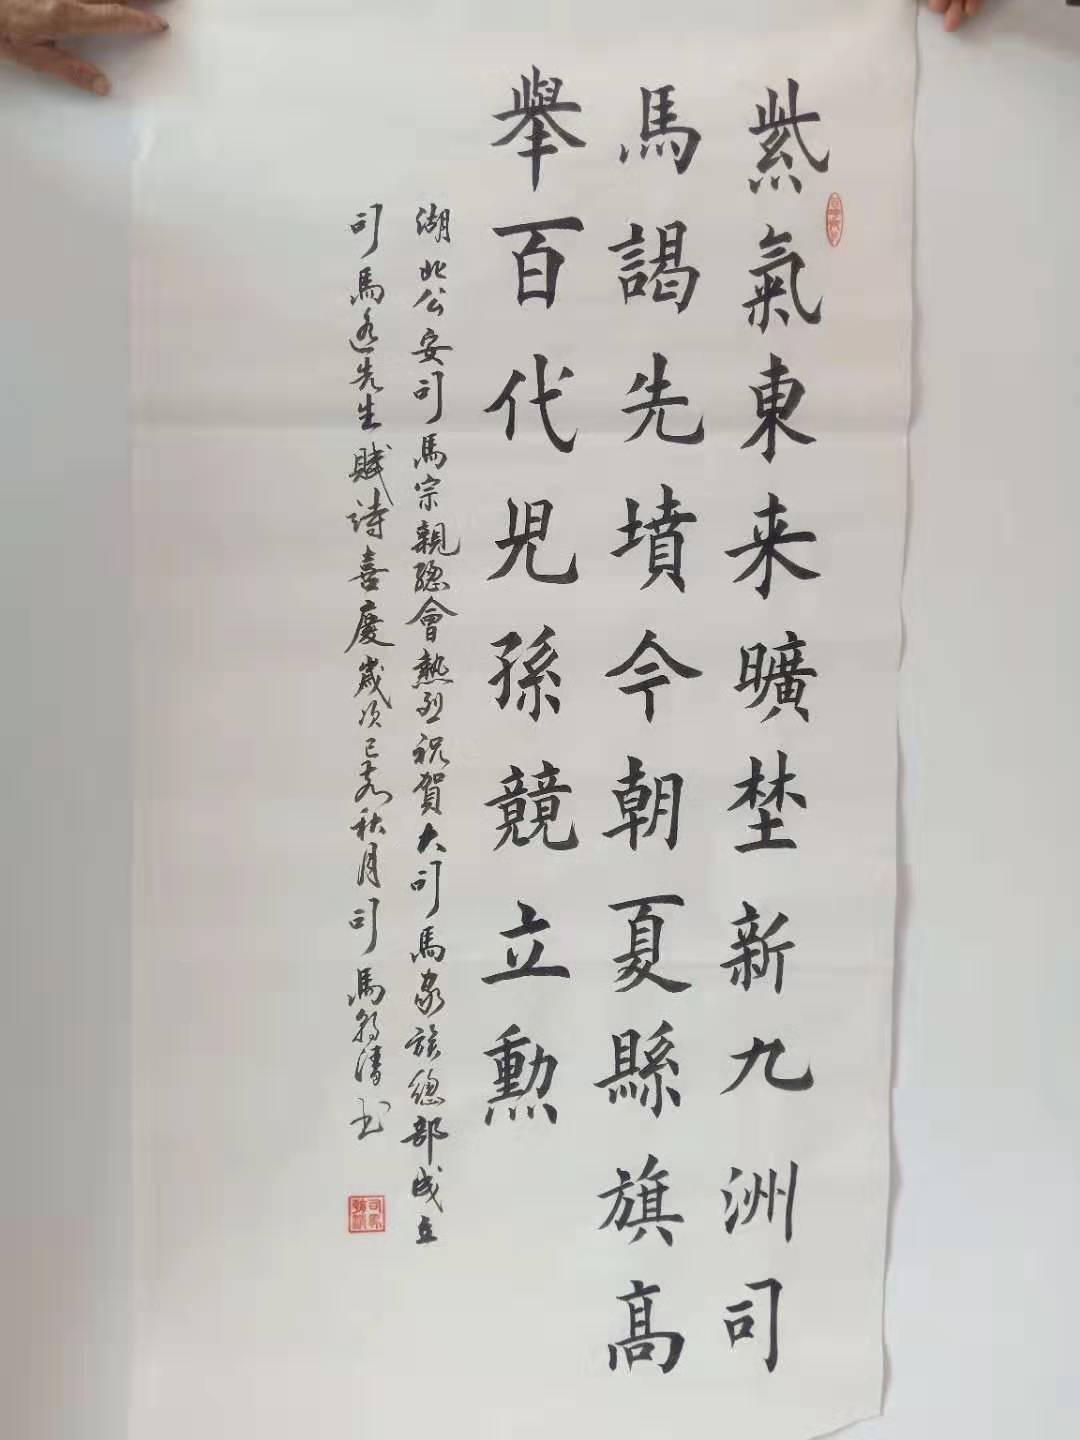 紫氣東来曠埜新九洲司
馬謁先墳今朝夏縣旗髙
舉百代児孫競立勲
湖北公安司馬宗親總會熱烈祝賀大司馬家族總部成立
司馬先生賦詩喜慶歲次己亥秋月司馬清书